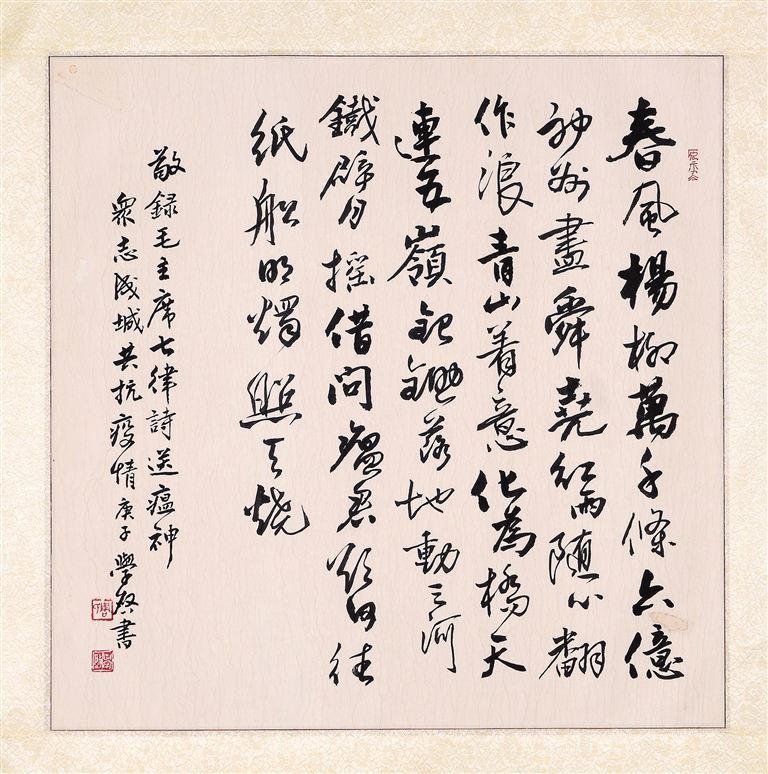 春風楊柳萬千條六億
神州盡舜堯紅雨隨心翻
作浪青山着意化為橋天
連五嶺銀鋤落地動三河
鐵臂月搖借問瘟君欲何往
纸船明燭照天燒
敬録毛主席七律詩送瘟神
衆志成城共抗疫情庚子學啓書